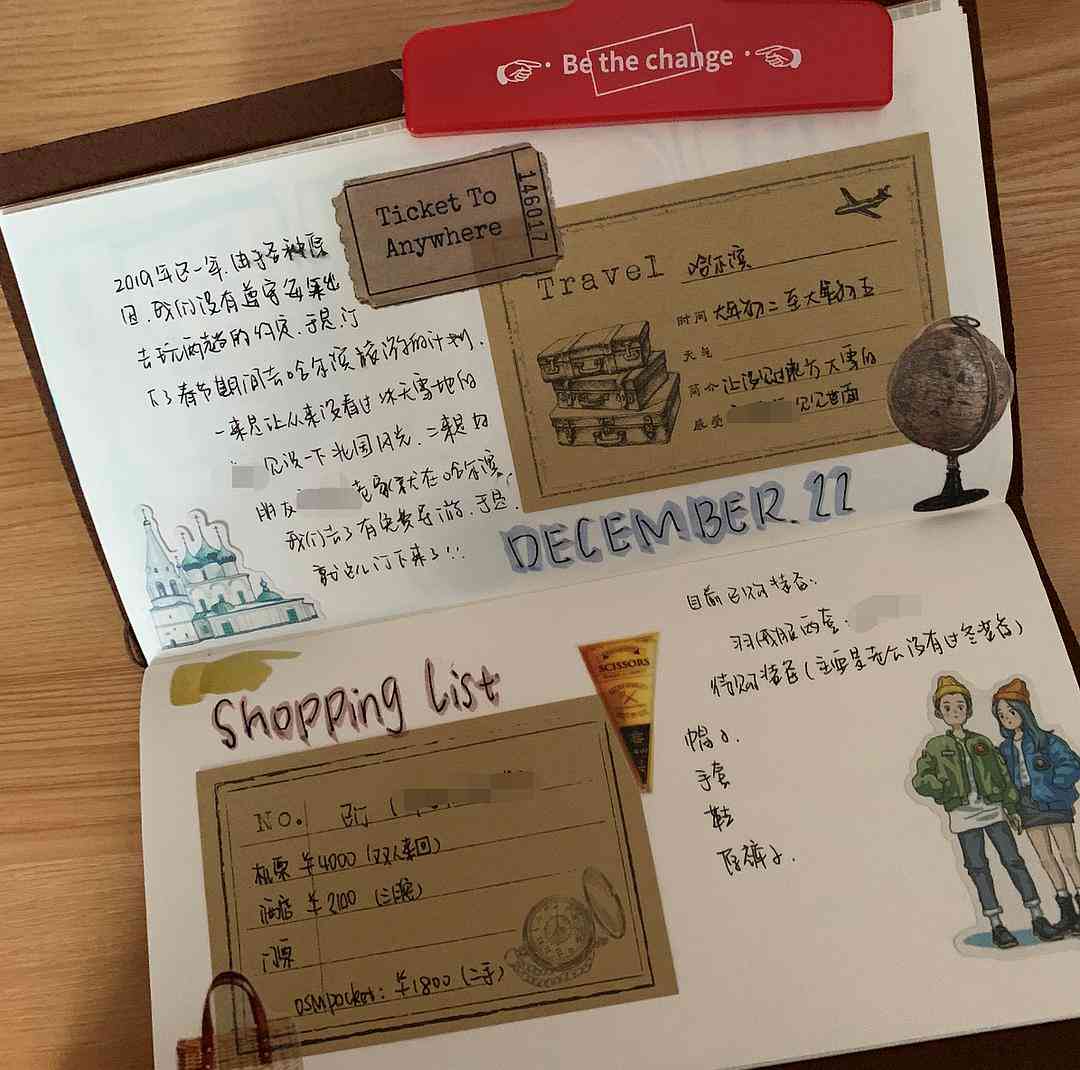 Be the change
Ticket To
Anywhere
146017
Travel 哈尔滨
时间 大年初二至大年初五
天气
简介 让没见过东方大雪的
感受 见见世面
2019年这一年,由于各种原
因,我们没有遵守每年出
去玩两趟的约定,于是,订
下了春节期间去哈尔滨旅游的计划.
一来是让从来没看过冰天雪地的
见识一下北国风光,二来是因
朋友 老家就在哈尔滨,
我们去了有免费导游,于是,
就这么订下来了!!!
DECEMBER.22
Shopping list
SCISSORS
No. 已订
机票 ¥4000 (双人来回)
酒店 ¥2100 (三晚)
门票
osmpocket: ¥1800 (二手)
目前已购装备:
羽绒服两套:
待购装备(主要是老公没有过冬装备)
帽子.
手套
鞋